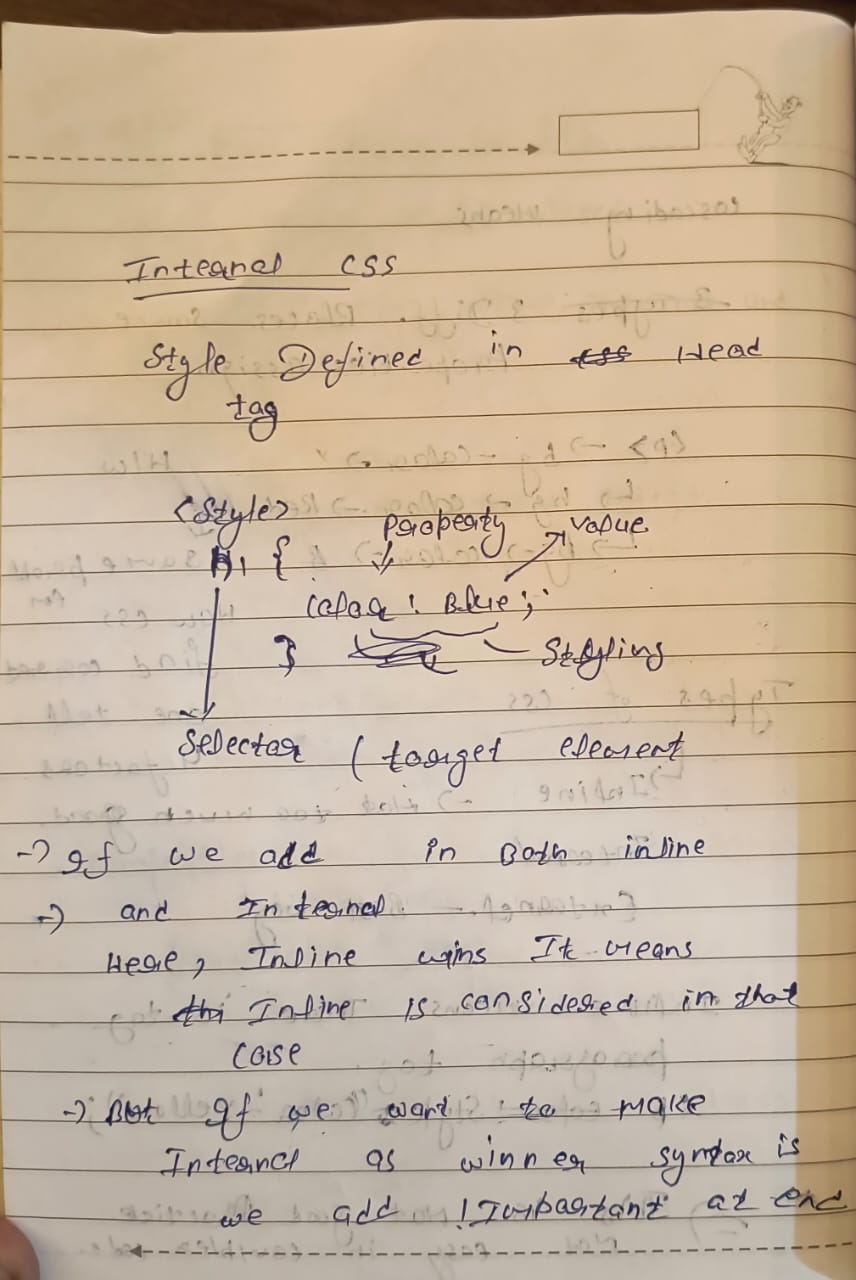 Internal CSS
Style Defined in Head
tag
<Style>
Property value
H1 {
Color : Blue ;
} Styling
Selector ( target element
-> If we add in Both inline
-> and Internal
Here, Inline wins It means
Inline is considered in that
case
-> But If we want to make
Internal as winner syntax is
we add !Important at end